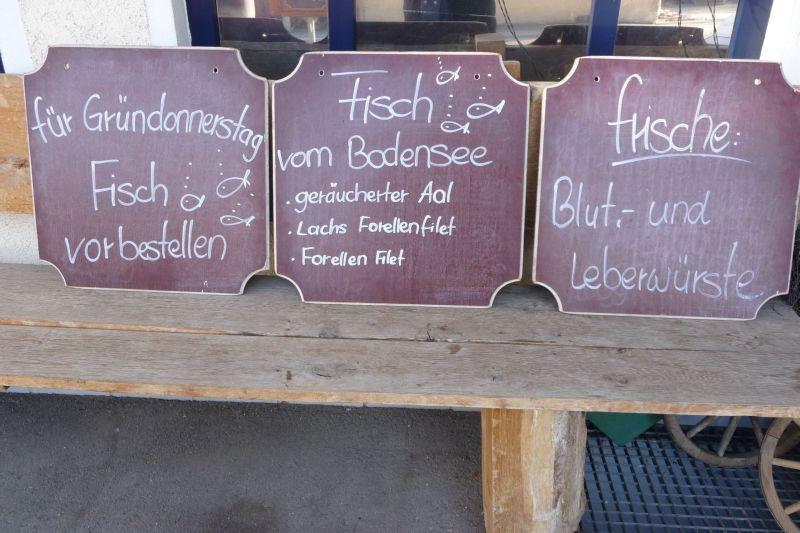 für Gründonnerstag
Fisch
vorbestellen
Fisch
vom Bodensee
. geräucherter Aal
. Lachs Forellenfilet
. Forellen Filet
frische:
Blut.- und
Leberwürste